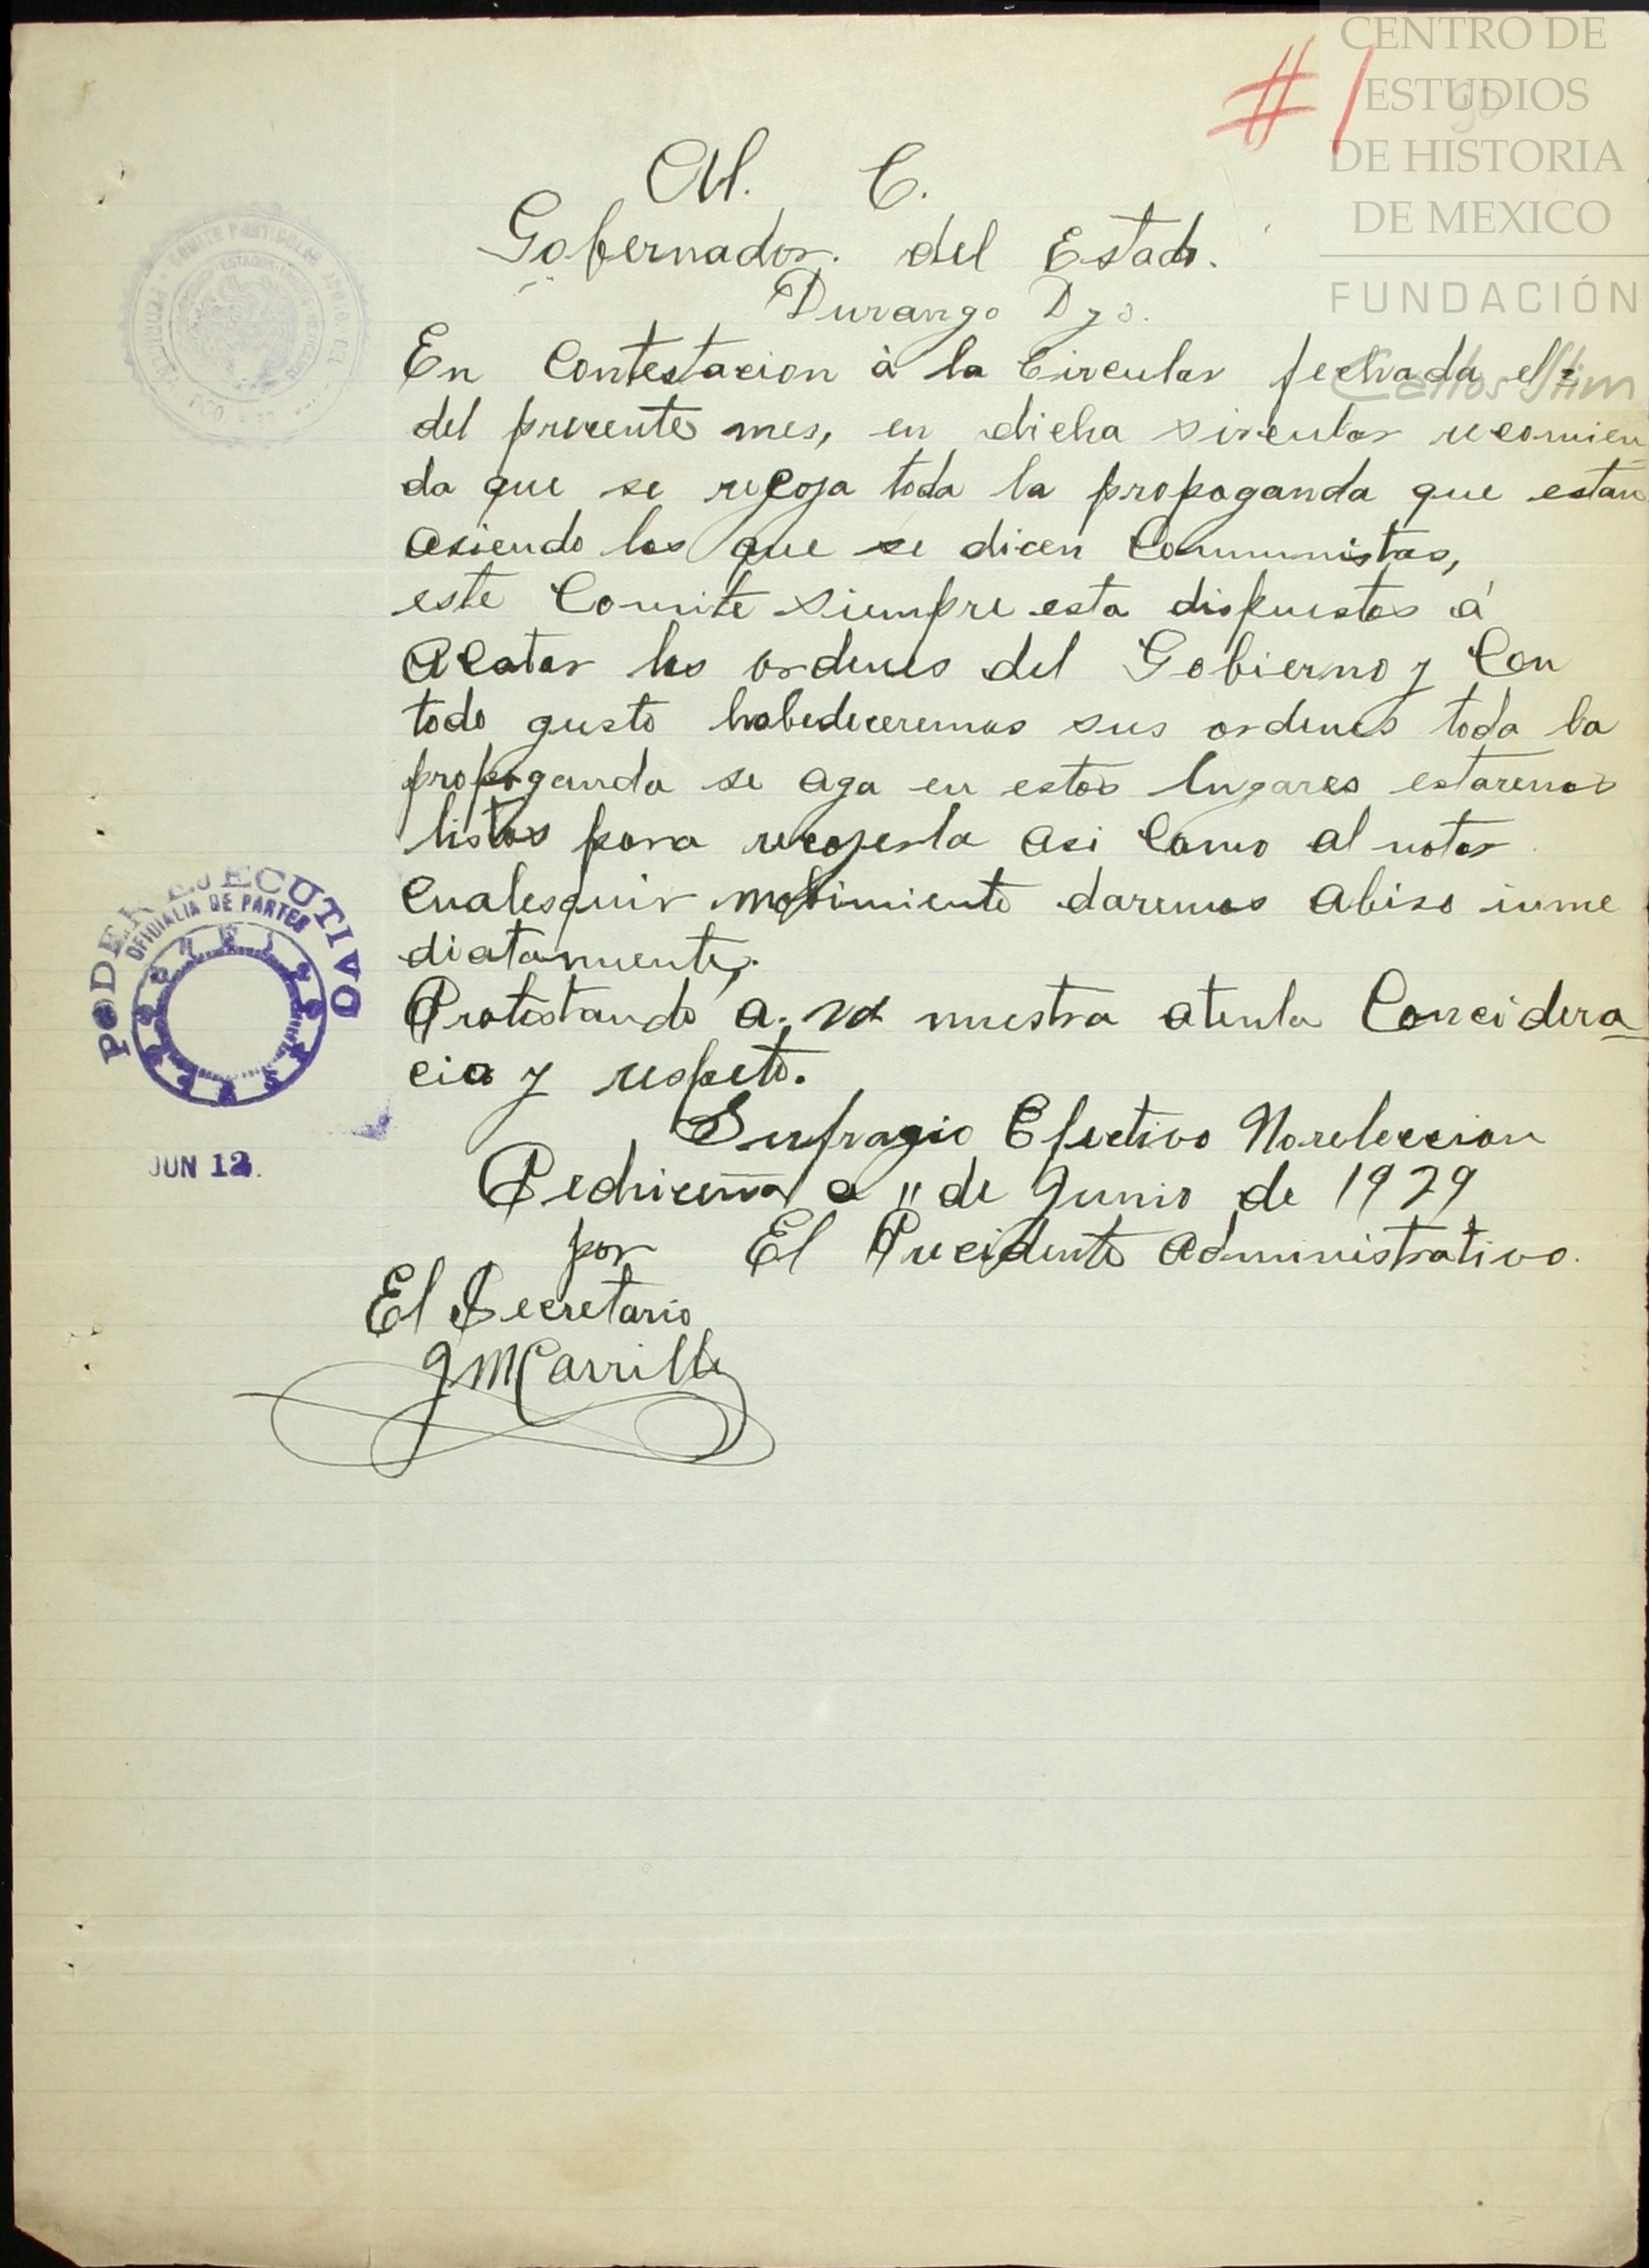 CENTRO DE
ESTUDIOS
DE HISTORIA
DE MEXICO
FUNDACIÓN
Carlos Slim
#1
Al. C.
Gobernador. del Estado.
Durango Dgo.
En Contestacion à la Circular fechada el
del precente mes, en dicha sircular recomien
da que se recoja toda la propaganda que estan
asiendo los que se dicen Communistas,
este Comite siempre esta dispuestos á
acatar las ordenes del Gobierno y Con
todo gusto habedeceremos sus ordenes toda la
propaganda se aga en estos lugares estaremos
listos para recojerla asi Como al notar
Cualesquir mobimiento daremos abiso inme
diatamente,.
Protestando a. Vd nuestra atenta Concidera
cio y respeto.
Sufragio Efectivo Noreleccion
Pedriceña a 11 de Junio de 1929
por El Precidente administrativo.
El Secretario
J M Carrillo
PODER EJECUTIVO
OFICIALIA DE PARTES
JUN 12.